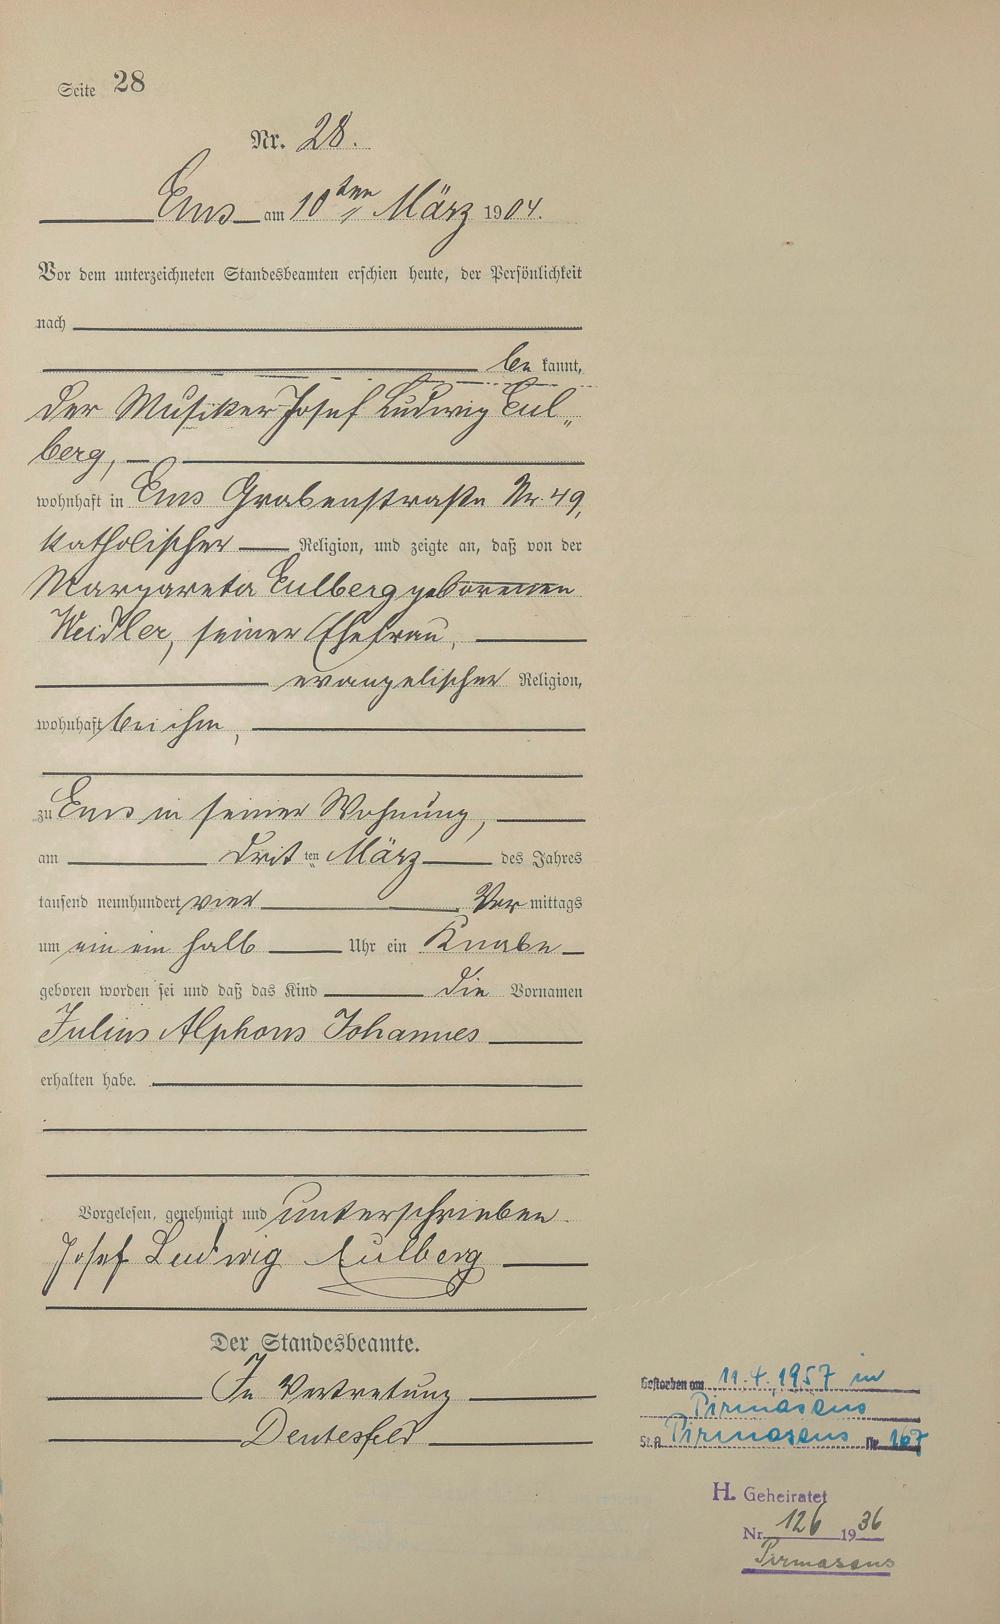 Seite 28
Nr. 28.
Ems am 10ten März 1904.
Vor dem unterzeichneten Standesbeamten erschien heute, der Persönlichkeit
nach
be kannt,
der Musiker Josef Ludwig Eul„
berg,
wohnhaft in Ems Grabenstraße Nr. 49,
katholischer Religion, und zeigte an, daß von der
Margareta Eulberg geborenen
Weidler, seiner Ehefrau,
evangelischer Religion,
wohnhaft bei ihm,
zu Ems in seiner Wohnung,
am dritten März des Jahres
tausend neunhundert vier Vor mittags
um ein ein halb Uhr ein Knabe
geboren worden sei und daß das Kind die Vornamen
Julius Alphons Johannes
erhalten habe.
Vorgelesen, genehmigt und unterschrieben.
Josef Ludwig Eulberg
Der Standesbeamte.
In Vertretung
Deutesfeld
Gestorben am 11.4.1957 in
Pirmasens
St.A. Pirmasens Nr 167
H. Geheiratet
Nr. 126 1936
Pirmasens